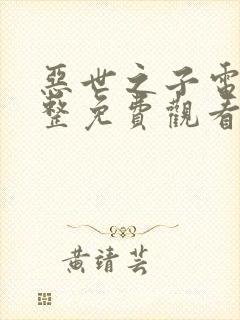 惡世之子電
整免費觀看
黃靖芸